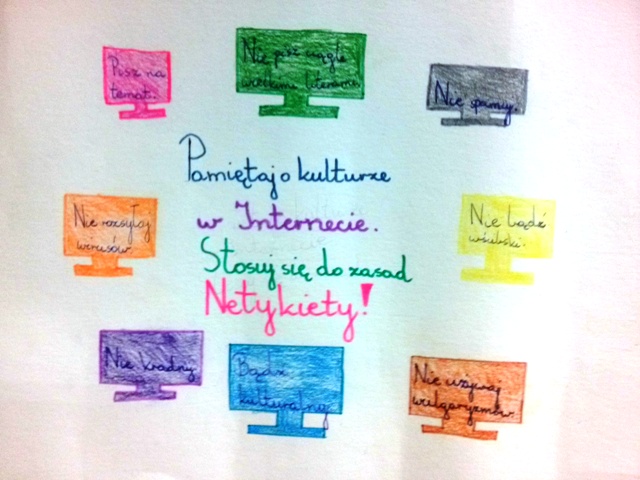 Pisz na
temat.
Nie pisz ciągle
wielkimi literami.
Nie spamuj.
Pamiętaj o kulturze
w Internecie.
Stosuj się do zasad
Netykiety!
Nie rozsyłaj
wirusów.
Nie bądź
wścibski.
Nie kradnij
Bądź
kulturalny
Nie używaj
wulgaryzmów.